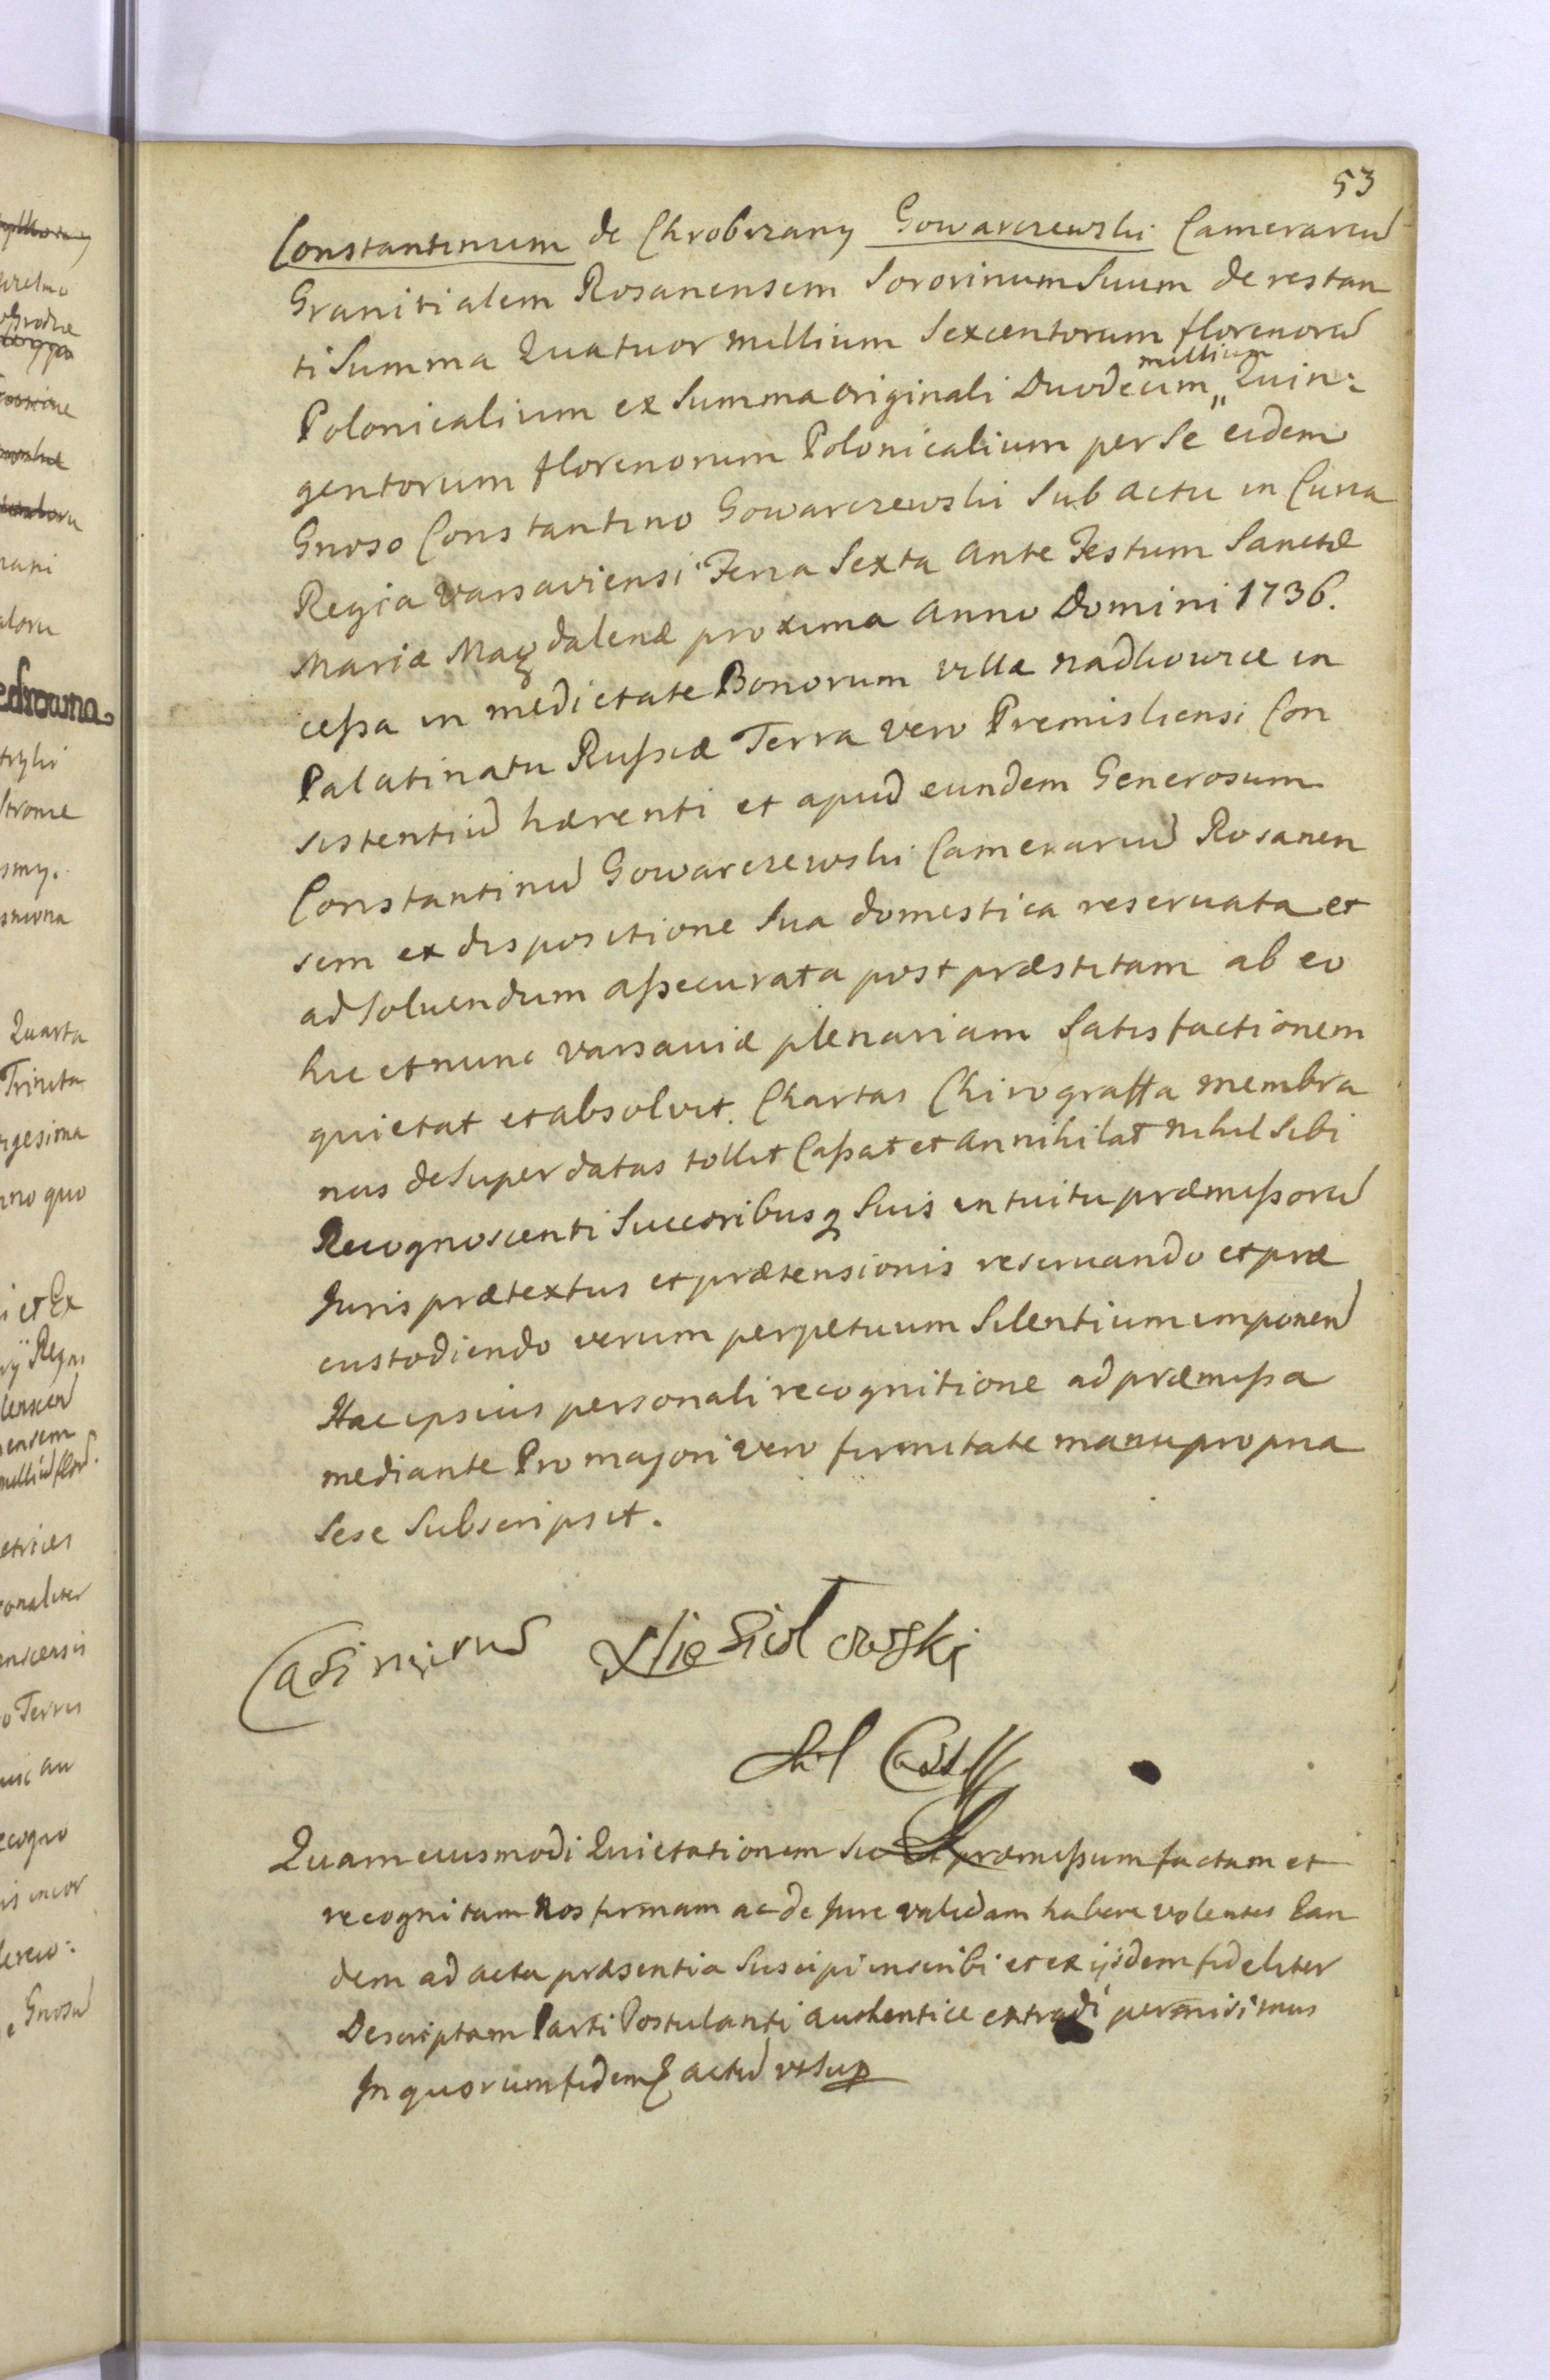 53
Constantinum de Chrobrzany Gowarczewski Camerariũ
Granitialem Rosanensem Sororinum Suum de restan
ti Summa Quatuor millium Sexcentorum florenorũ
Polonicalium ex Summa originali Duodecim „ millium Quin:
gentorum florenorum Polonicalium per Se eidem
Gnoso Constantino Gowarczewski Sub actu in Curia
Regia Varsaviensi Feria Sexta ante Festum Sanctæ
Mariæ Magdalenæ proxima Anno Domini 1736.
cessa in medietate Bonorum villæ nadkowice in
Palatinatu Russiæ Terra vero Premisliensi Con
sistentiũ hærenti et apud eundem Generosum
Constantinũ Gowarczewski Camerariũ Rosanen
sem ex dispositione Sua domestica reservata et
ad Solvendum assecurata post præstitam ab eo
hic et nunc Varsaviæ plenariam Satisfactionem
quietat et absolvit. Chartas Chirograffa membra
nas desuper datas tollit Cassat et Annihilat nihil Sibi
Recognoscenti Succoribusq Suis intuitu præmissorũ
Juris prætextus et prætensionis reservando et præ
custodiendo verum perpetuum Silentium imponenđ
Hac ipsius personali recognitione ad præmissa
mediante Pro majori vero firmitate manu propria
Sese Subscripsit.
Casimirus Niesiołowski
Quam eiusmodi Quietationem Sic ut præmissum factam et
recognitam Nos firmam ac de Jure validam habere volentes Ean
dem ad acta præsentia Suscipi inscribi et ex ijsdem fideliter
Descriptam Parti Postulanti authentice extradi permisimus
In quorum fidem actũ ut Sup